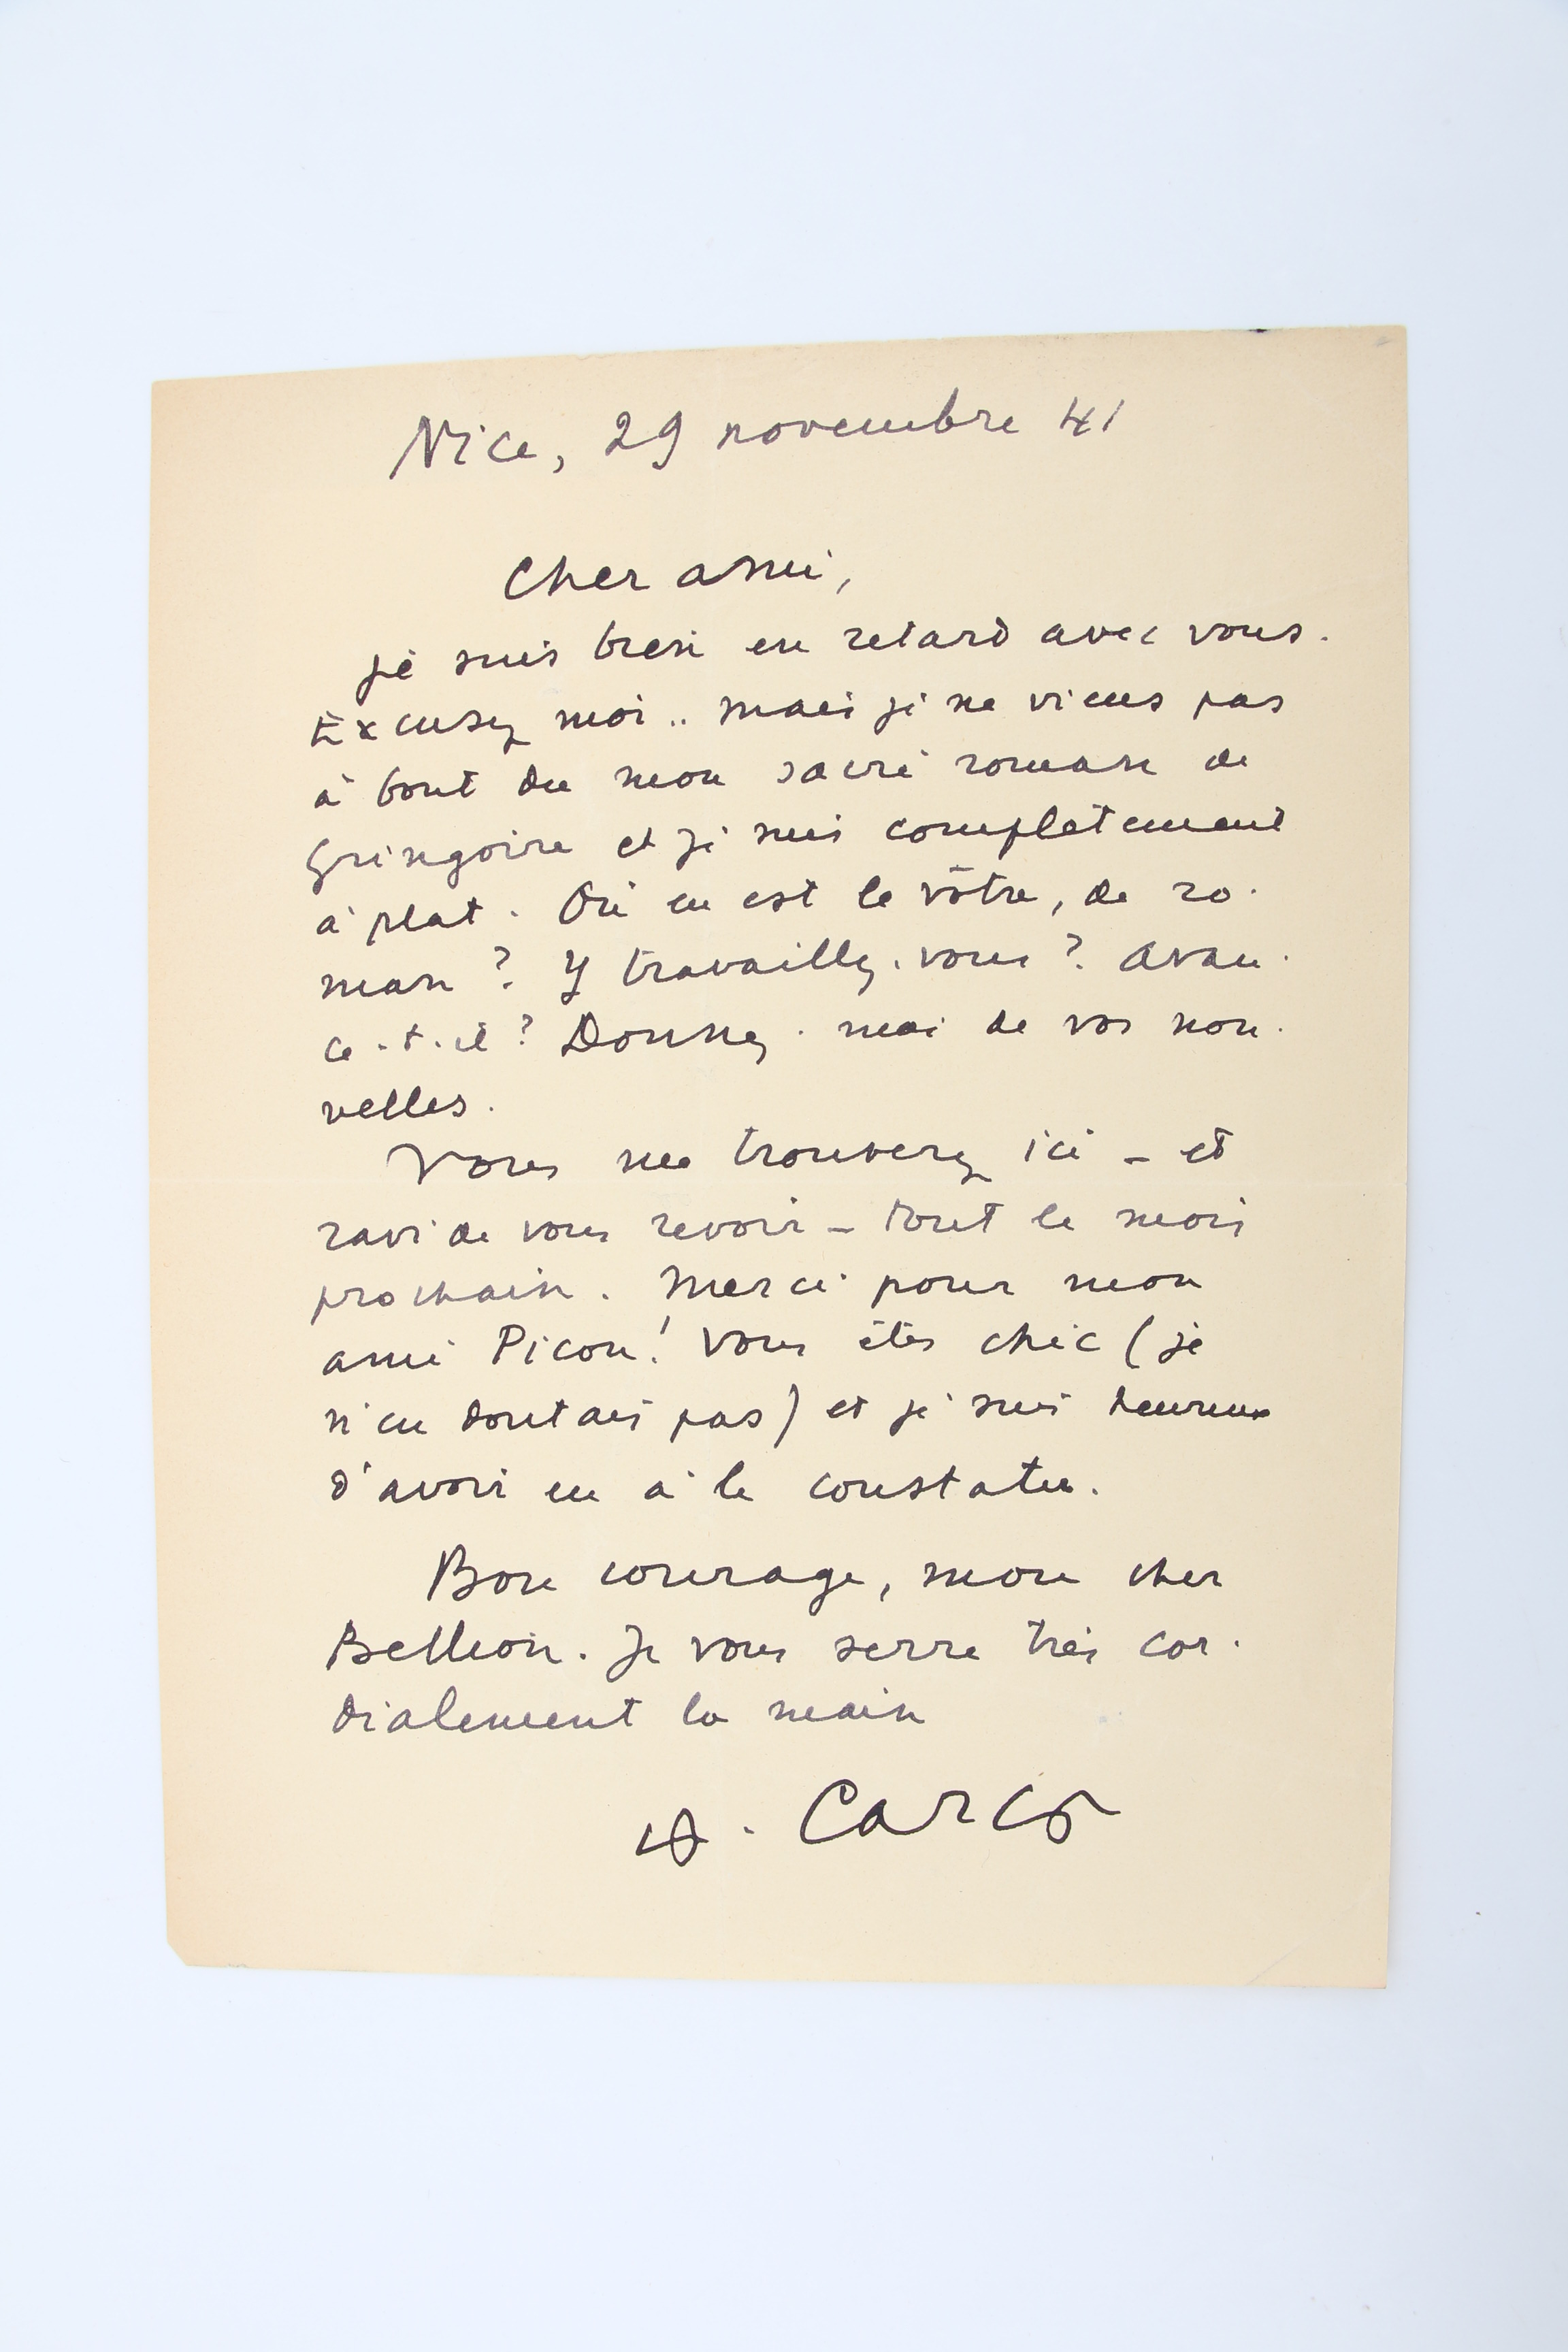 Nice, 29 novembre 41
Cher ami,
Je suis bien en retard avec vous.
Excusez moi .. mais je ne viens pas
à bout de mon sacré roman de
Gringoire et je suis complètement
à plat. Où en est le vôtre, de ro-
man ? Y travaillez-vous ? Avan-
ce-t-il ? Donnez-moi de vos nou-
velles.
Vous me trouverez ici – et
ravi de vous revoir – tout le mois
prochain. Merci pour mon
ami Picon ! Vous êtes chic (je
n'en doutais pas) et je suis heureux
d'avoir eu à le constater.
Bon courage, mon cher
Je vous serre très cor-
dialement la main
Carco